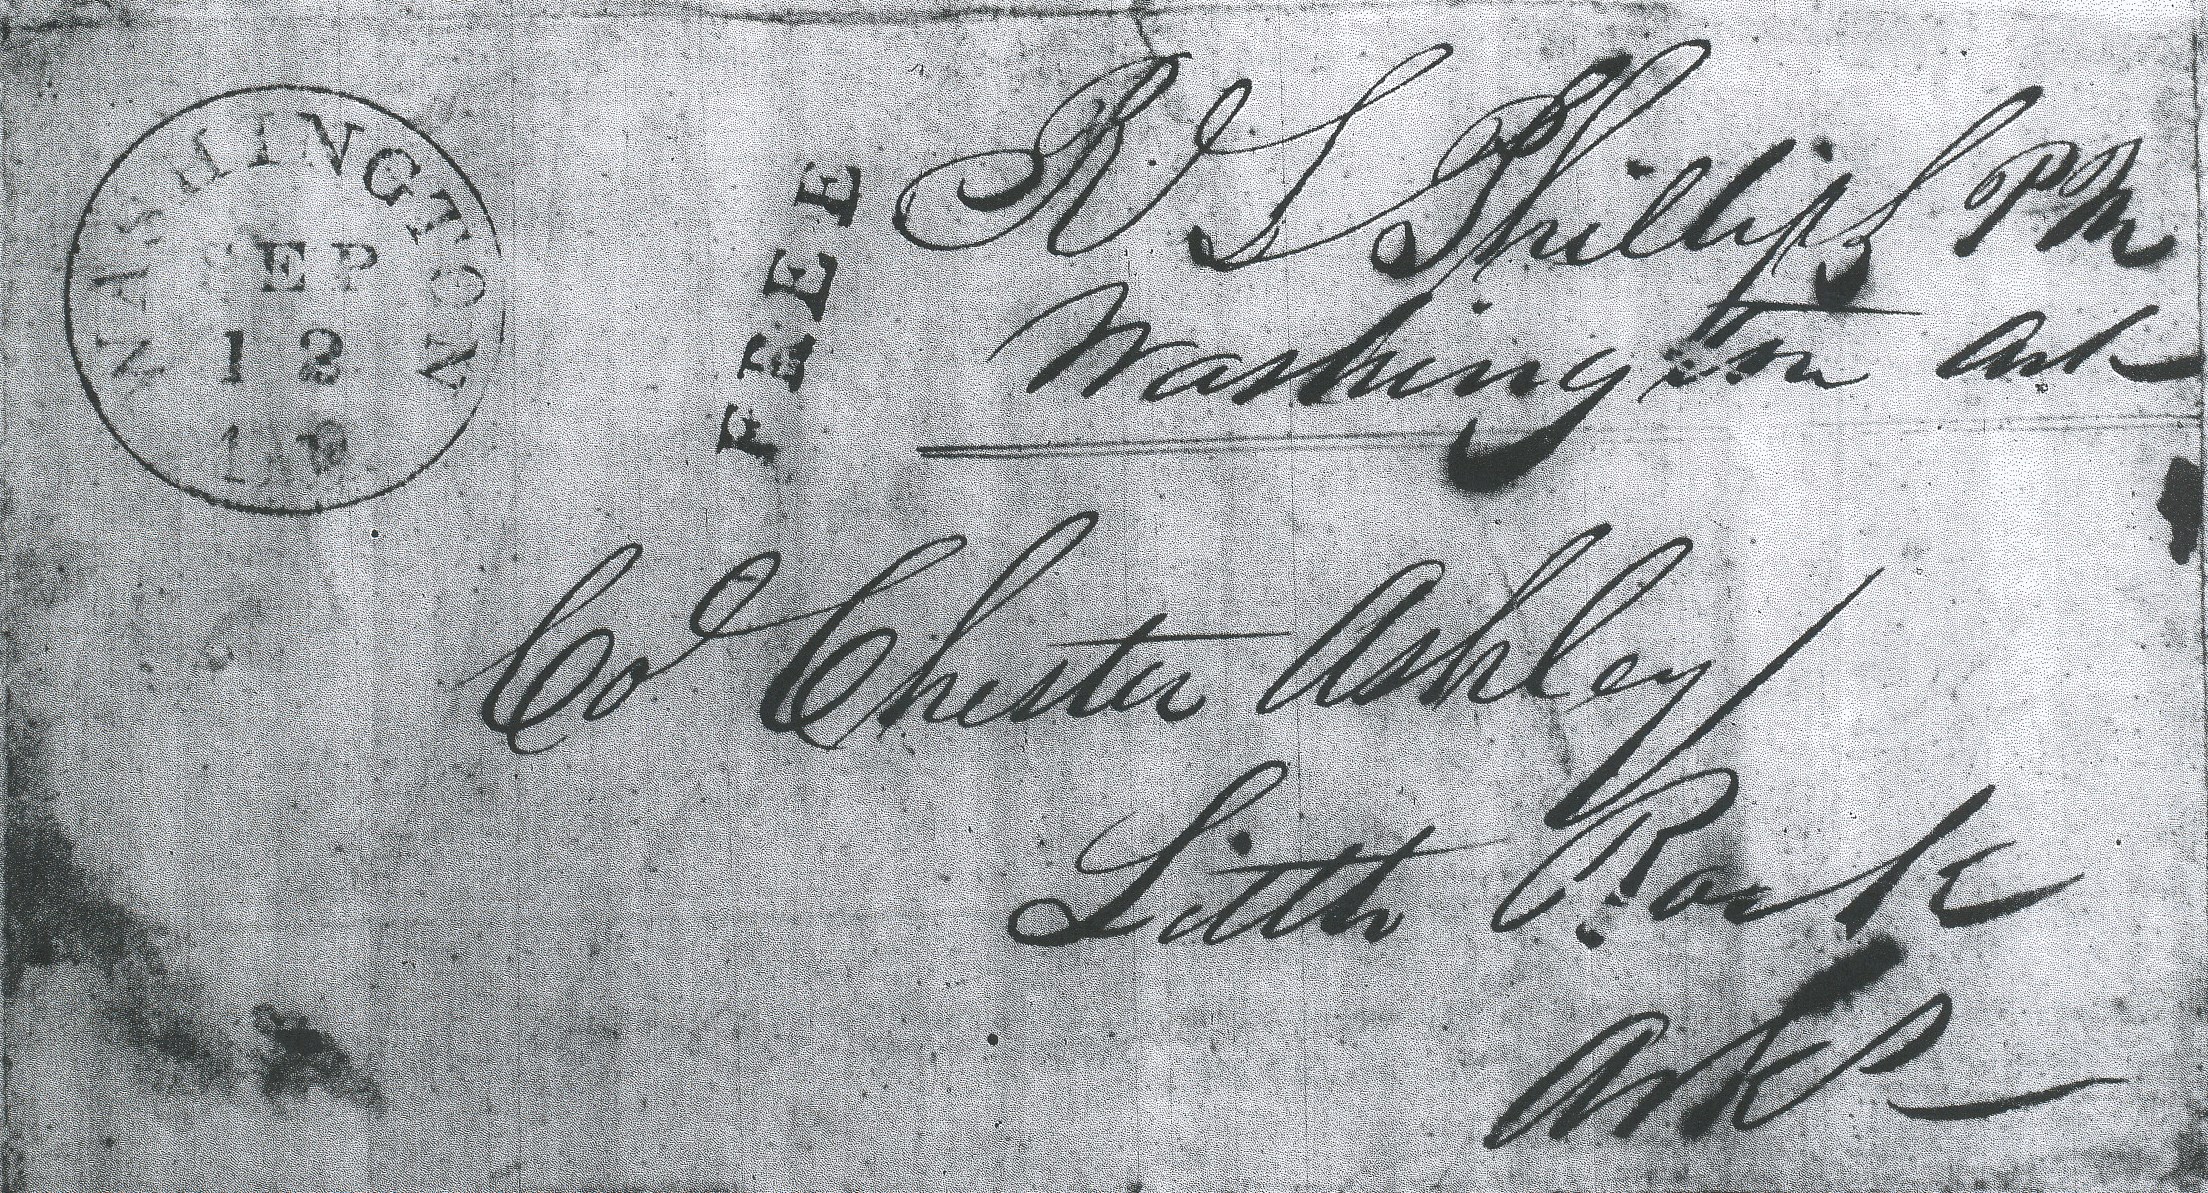 WASHINGTON
SEP
12
FREE
R S Phillips PM
Washington Ark
Col Chester Ashley
Little Rock
Arks